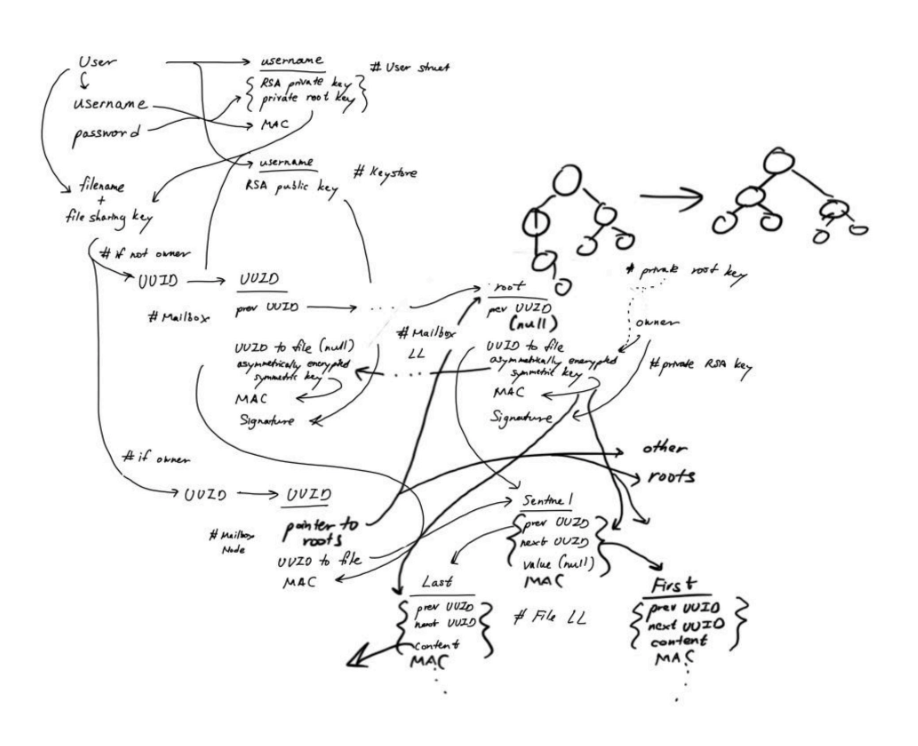 User
username
password
username
RSA private key
private root key
MAC
# User struct
username
RSA public key
# Keystore
filename
+
file sharing key
# if not owner
UUID
UUID
prev UUID
....
# Mailbox
UUID to file (null)
asymmetrically encrypted
symmetric key
MAC
Signature
# Mailbox
LL
...
root
prev UUID
(null)
UUID to file
asymmetrically encrypted
symmetric key
MAC
Signature
# private root key
owner
# private RSA key
other
roots
# if owner
UUID
UUID
pointer to
roots
UUID to file
MAC
# Mailbox
Node
Sentinel
prev UUID
next UUID
value (null)
MAC
Last
prev UUID
next UUID
content
MAC
# File LL
First
prev UUID
next UUID
content
MAC